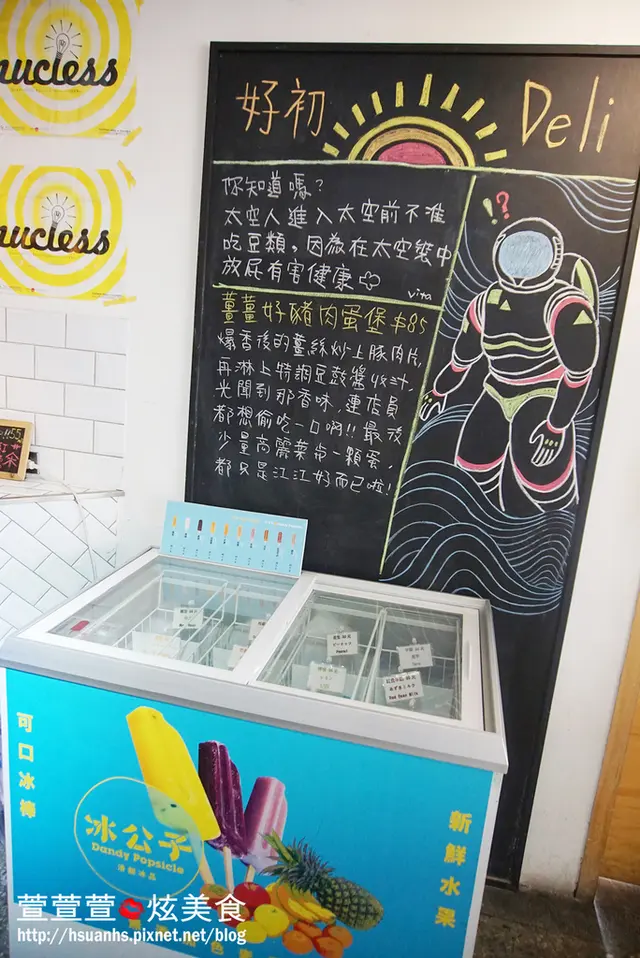 nucless
nucless
好初
Deli
你知道嗎?
太空人進入太空前不准
吃豆類,因為在太空裝中
放屁有害健康
vita
薑薑好豬肉蛋堡 $85
爆香後的薑絲炒上豚肉片,
再淋上特調豆豉醬收汁,
光聞到那香味,連店員
都想偷吃一口啊!! 最後
少量高麗菜與一顆蛋,
都只是江江好而已啦!
!?
可口冰棒
冰公子
Dandy Popsicle
新鮮水果
萱萱萱 炫美食
http://hsuanhs.pixnet.net/blog